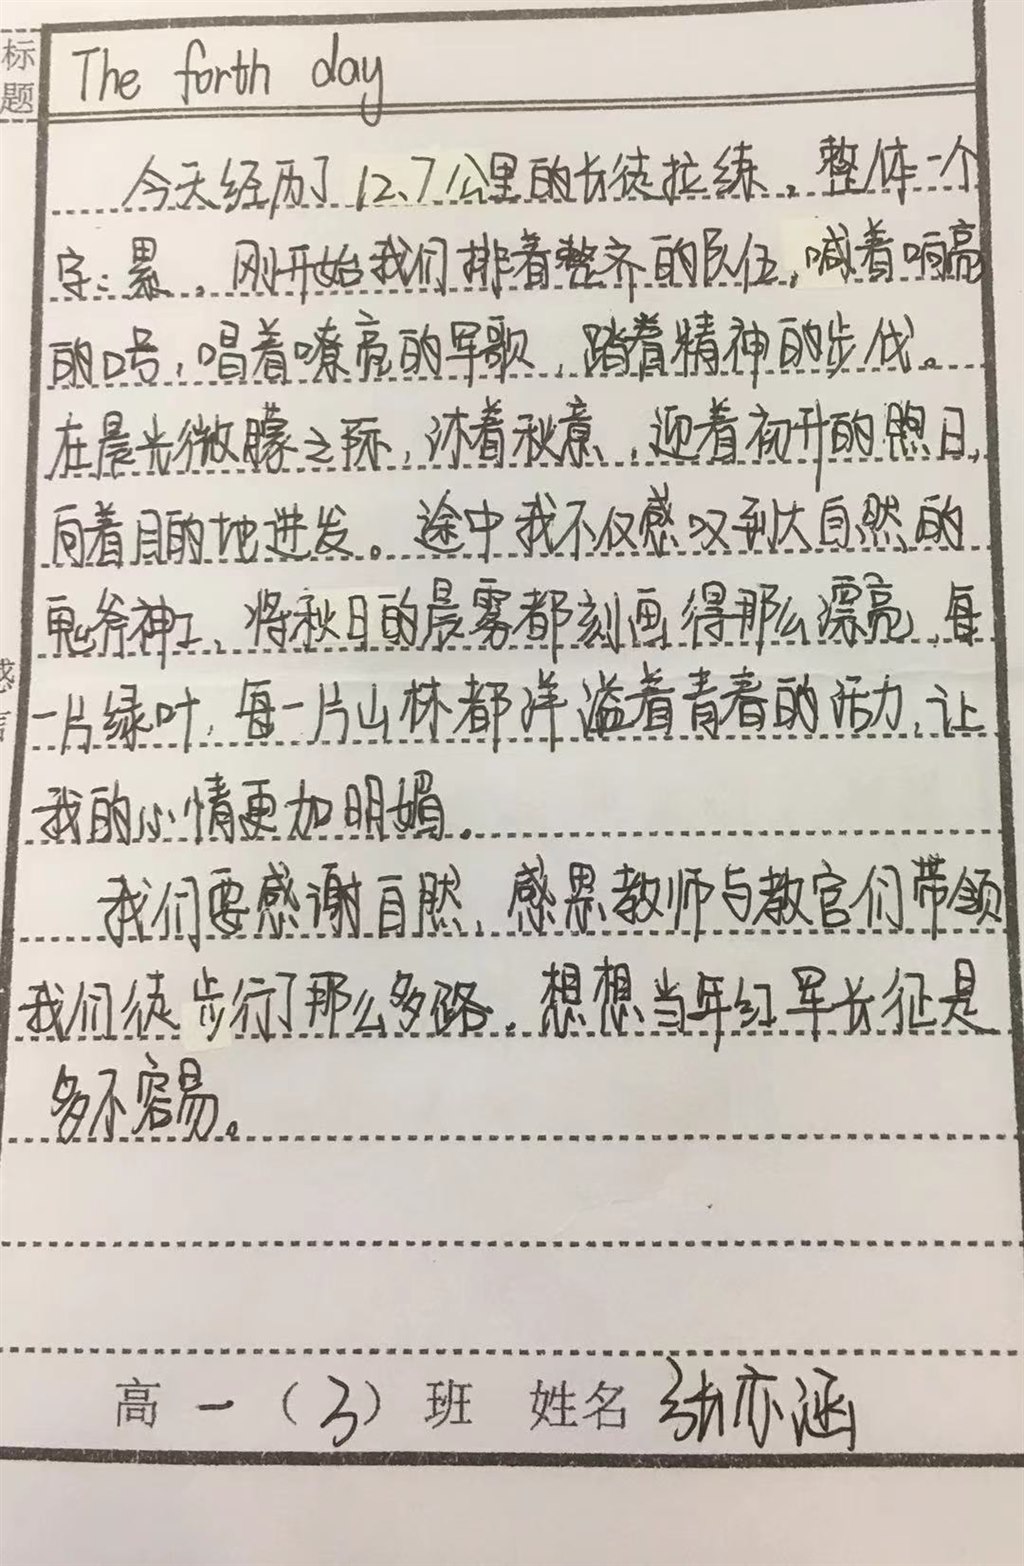 标题 The forth day
今天经历了12.7公里的长徒拉练，整体一个
字：累，刚开始我们排着整齐的队伍，喊着响高
的口号，唱着嘹亮的军歌，踏着精神的步伐。
在晨光微朦之际，沐着秋意，迎着初升的煦日，
向着目的地进发。途中我不仅感叹到大自然的
鬼斧神工，将秋日的晨雾都刻画得那么漂亮，每
一片绿叶，每一片山林都洋溢着青春的活力，让
我的心情更加明媚。
我们要感谢自然，感恩教师与教官们带领
我们徒步行了那么多路。想想当年红军长征是
多不容易。
高一（3）班 姓名 张亦涵